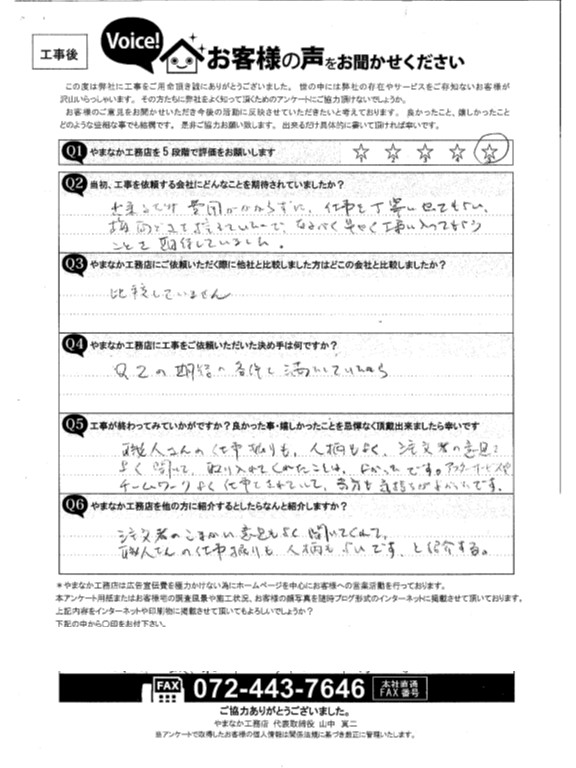 工事後
Voice!
お客様の声をお聞かせください
この度は弊社に工事をご用命頂き誠にありがとうございました。世の中には弊社の存在やサービスをご存知ないお客様が
沢山いらっしゃいます。その方たちに弊社をよく知って頂くためのアンケートにご協力頂けないでしょうか。
お客様のご意見をお聞かせいただき今後の活動に反映させていただきたいと考えております。良かったこと、嬉しかったこと
どのような些細な事でも結構です。是非ご協力お願い致します。出来るだけ具体的に書いて頂ければ幸いです。
Q1 やまなか工務店を5段階で評価をお願いします
Q2 当初、工事を依頼する会社にどんなことを期待されていましたか?
出来るだけ費用がかからずに、仕事を丁寧にせてもらい、
なるべく早く工事に入ってもらう
ことを期待していました。
Q3 やまなか工務店にご依頼いただく際に他社と比較しました方はどこの会社と比較しましたか?
比較していません
Q4 やまなか工務店に工事をご依頼いただいた決め手は何ですか?
Q2の期待の条件を満たしていたから
Q5 工事が終わってみていかがですか?良かった事・嬉しかったことを忌憚なく頂戴出来ましたら幸いです
職人さんの仕事振りも、人柄もよく、注文者の意見を
よく聞いて、取り入れてくれたことは、よかったです。
チームワークよく仕事をされていて、気持ちがよかったです。
Q6 やまなか工務店を他の方に紹介するとしたらなんと紹介しますか?
注文者のこまかい意見もよく聞いてくれて、
職人さんの仕事振りも、人柄もよいです、と紹介する。
*やまなか工務店は広告宣伝費を極力かけない為にホームページを中心にお客様への営業活動を行っております。
本アンケート用紙またはお客様宅の調査風景や施工状況、お客様の顔写真を随時ブログ形式のインターネットに掲載させて頂いております。
上記内容をインターネットや印刷物に掲載させて頂いてもよろしいでしょうか?
下記の中から○印をお付下さい。
FAX 072-443-7646 本社直通 FAX番号
ご協力ありがとうございました。
やまなか工務店 代表取締役 山中
当アンケートで取得したお客様の個人情報は関係法規に基づき厳正に管理いたします。